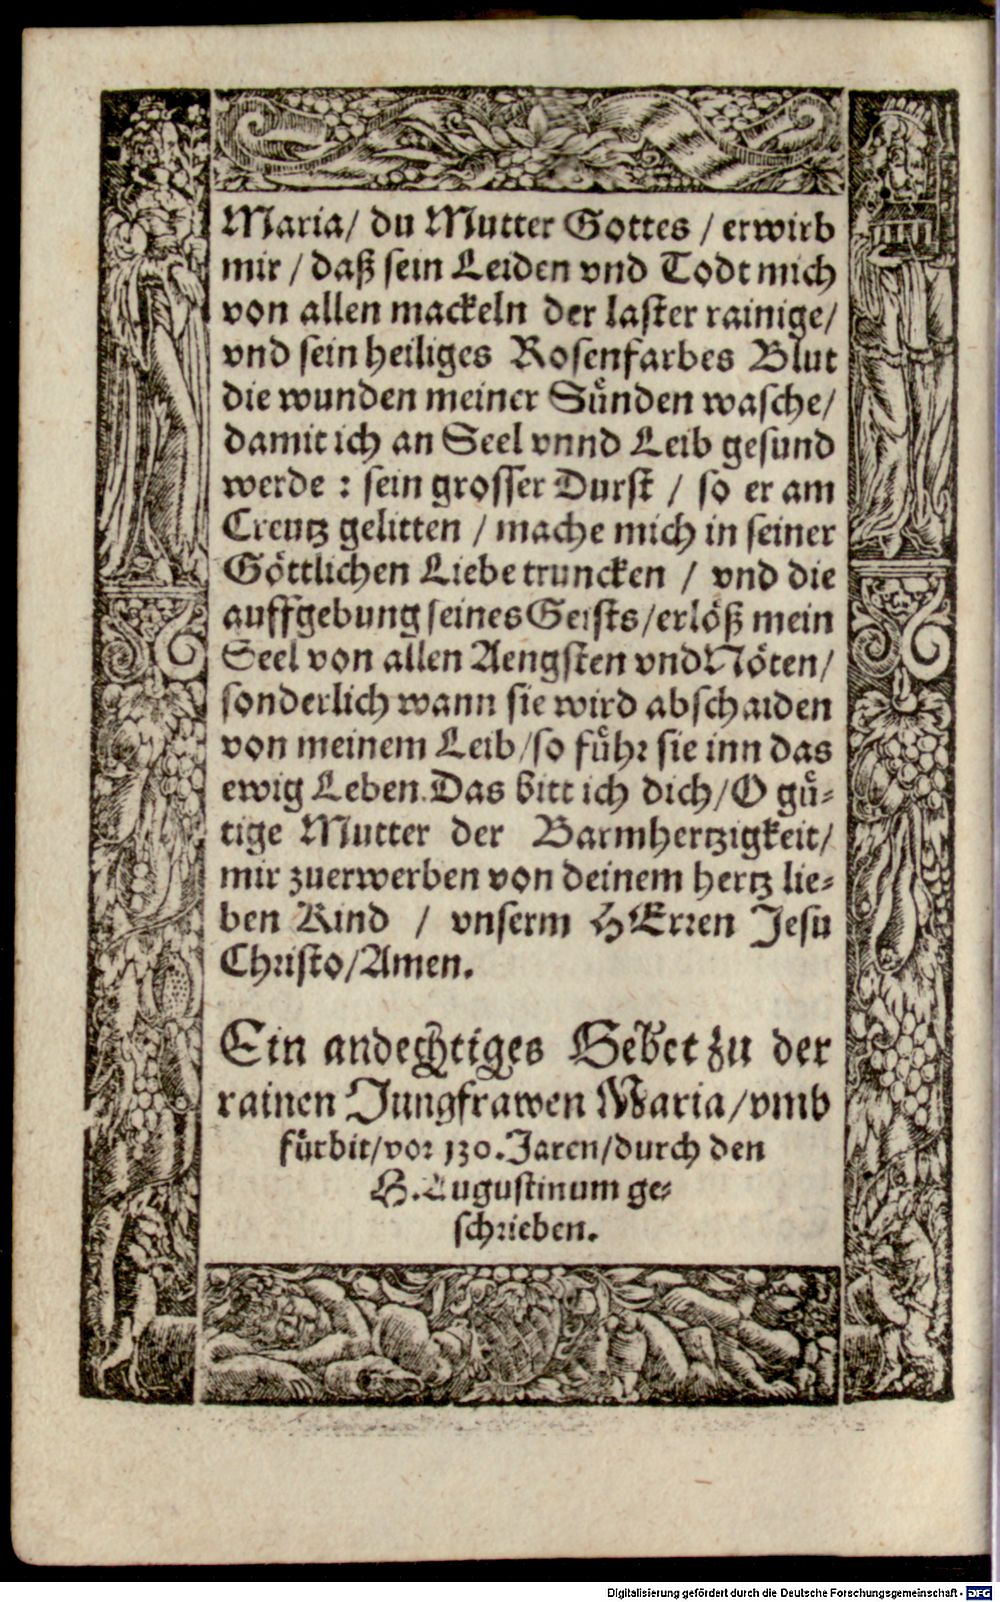 Maria/ du Mutter Gottes / erwirb
mir / daß sein Leiden vnd Todt mich
von allen mackeln der laster rainige/
vnd sein heiliges Rosenfarbes Blut
die wunden meiner Sünden wasche/
damit ich an Seel vnnd Leib gesund
werde : sein grosser Durst / so er am
Creutz gelitten / mache mich in seiner
Göttlichen Liebe truncken / vnd die
auffgebung seines Geists/erlöß mein
Seel von allen Aengsten vnd Nöten/
sonderlich wann sie wird abschaiden
von meinem Leib/so führ sie inn das
ewig Leben. Das bitt ich dich/O gü-
tige Mutter der Barmhertzigkeit/
mir zuerwerben von deinem hertz lie-
ben Kind / vnserm HErren Jesu
Christo/Amen.
Ein andechtiges Gebet zu der
rainen Jungfrawen Maria/vmb
fürbit/vor 130. Jaren/durch den
H. Augustinum ge-
schrieben.
Digitalisierung gefördert durch die Deutsche Forschungsgemeinschaft - DFG